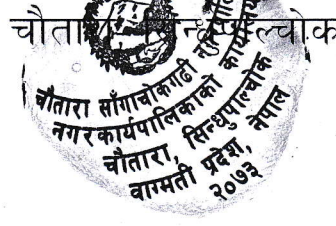 चौतारा, सिन्धुपाल्चोक
चौतारा साँगाचोकगढी नगरपालिका
नगरकार्यपालिकाको कार्यालय
चौतारा, सिन्धुपाल्चोक
वाग्मती प्रदेश, नेपाल
२०७३